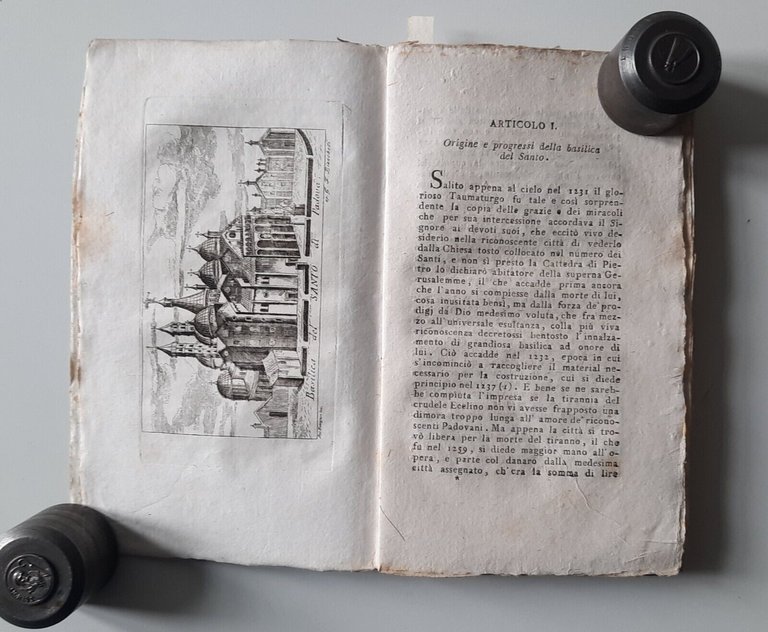 Basilica del SANTO di Padova
ARTICOLO I.
Origine e progressi della basilica
del Santo.
Salito appena al cielo nel 1231 il glo-
rioso Taumaturgo fu tale e così sorpren-
dente la copia delle grazie e dei miracoli
che per sua intercessione accordava il Si-
gnore ai devoti suoi, che eccitò vivo de-
siderio nella riconoscente città di vederlo
dalla Chiesa tosto collocato nel numero dei
Santi, e non sì presto la Cattedra di Pie-
tro lo dichiarò abitatore della superna Ge-
rusalemme, il che accadde prima ancora
che l'anno si compiesse dalla morte di lui,
cosa inusitata bensì, ma dalla forza de' pro-
digj da Dio medesimo voluta, che fra mez-
zo all'universale esultanza, colla più viva
riconoscenza decretossi bentosto l'innalza-
mento di grandiosa basilica ad onore di
lui. Ciò accadde nel 1232, epoca in cui
s'incominciò a raccogliere il material ne-
cessario per la costruzione, cui si diede
principio nel 1237 (1). E bene se ne sareb-
be compiuta l'impresa se la tirannia del
crudele Ecelino non vi avesse frapposto una
dimora troppo lunga all' amore de' ricono-
scenti Padovani. Ma appena la città si tro-
vò libera per la morte del tiranno, il che
fu nel 1259, si diede maggior mano all'o-
pera, e parte col danaro dalla medesima
città assegnato, ch'era la somma di lire
*